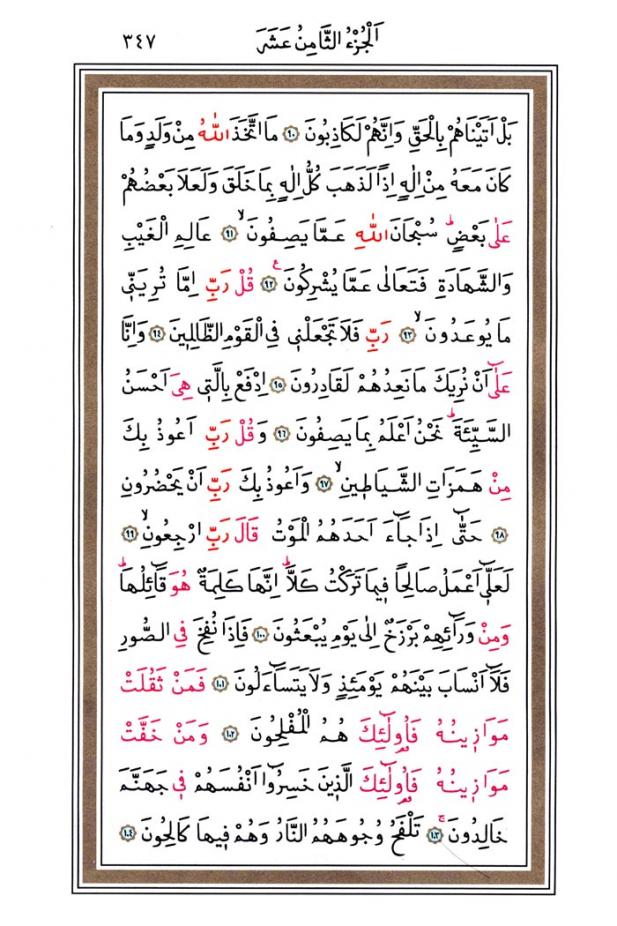 اَلْجُزْءُ الثَّامِنُ عَشَرَ ٣٤٧
بَلْ اَتَيْنَاهُمْ بِالْحَقِّ وَاِنَّهُمْ لَكَاذِبُونَ ﴿٩٠﴾ مَا اتَّخَذَ اللّٰهُ مِنْ وَلَدٍ وَمَا
كَانَ مَعَهُ مِنْ اِلٰهٍ اِذًا لَذَهَبَ كُلُّ اِلٰهٍ بِمَا خَلَقَ وَلَعَلَا بَعْضُهُمْ
عَلٰى بَعْضٍۜ سُبْحَانَ اللّٰهِ عَمَّا يَصِفُونَۙ ﴿٩١﴾ عَالِمِ الْغَيْبِ
وَالشَّهَادَةِ فَتَعَالٰى عَمَّا يُشْرِكُونَ۟ ﴿٩٢﴾ قُلْ رَبِّ اِمَّا تُرِيَنّٖي
مَا يُوعَدُونَۙ ﴿٩٣﴾ رَبِّ فَلَا تَجْعَلْنٖي فِي الْقَوْمِ الظَّالِمٖينَ ﴿٩٤﴾ وَاِنَّا
عَلٰٓى اَنْ نُرِيَكَ مَا نَعِدُهُمْ لَقَادِرُونَ ﴿٩٥﴾ اِدْفَعْ بِالَّتٖي هِيَ اَحْسَنُ
السَّيِّئَةَۜ نَحْنُ اَعْلَمُ بِمَا يَصِفُونَ ﴿٩٦﴾ وَقُلْ رَبِّ اَعُوذُ بِكَ
مِنْ هَمَزَاتِ الشَّيَاطٖينِۙ ﴿٩٧﴾ وَاَعُوذُ بِكَ رَبِّ اَنْ يَحْضُرُونِ
﴿٩٨﴾ حَتّٰٓى اِذَا جَٓاءَ اَحَدَهُمُ الْمَوْتُ قَالَ رَبِّ ارْجِعُونِۙ ﴿٩٩﴾
لَعَلّٖٓي اَعْمَلُ صَالِحًا فٖيمَا تَرَكْتُ كَلَّاۜ اِنَّهَا كَلِمَةٌ هُوَ قَٓائِلُهَاۜ
وَمِنْ وَرَٓائِهِمْ بَرْزَخٌ اِلٰى يَوْمِ يُبْعَثُونَ ﴿١٠٠﴾ فَاِذَا نُفِخَ فِي الصُّورِ
فَلَٓا اَنْسَابَ بَيْنَهُمْ يَوْمَئِذٍ وَلَا يَتَسَٓاءَلُونَ ﴿١٠١﴾ فَمَنْ ثَقُلَتْ
مَوَازٖينُهُ فَاُو۬لٰٓئِكَ هُمُ الْمُفْلِحُونَ ﴿١٠٢﴾ وَمَنْ خَفَّتْ
مَوَازٖينُهُ فَاُو۬لٰٓئِكَ الَّذٖينَ خَسِرُٓوا اَنْفُسَهُمْ فٖي جَهَنَّمَ
خَالِدُونَۚ ﴿١٠٣﴾ تَلْفَحُ وُجُوهَهُمُ النَّارُ وَهُمْ فٖيهَا كَالِحُونَ ﴿١٠٤﴾